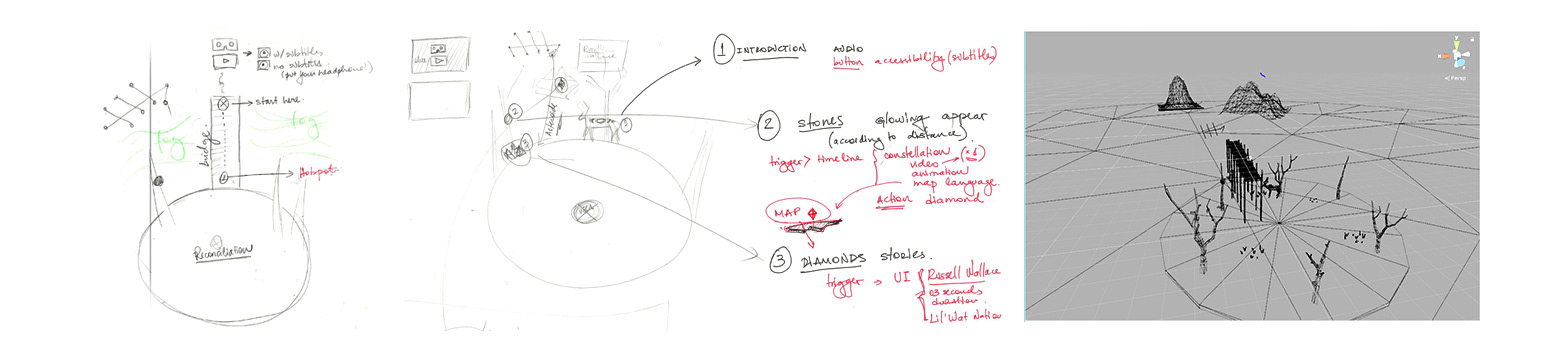 w/ subtitles
no subtitles
(put your headphone!)
start here.
fog
fog
bridge
Hotspots
Reconciliation
2
Activate
3
1 INTRODUCTION AUDIO
button accessibility (subtitles)
2 STONES glowing appear
(according to distance)
trigger > timeline
constellation
video
animation
map language.
ACTION diamond
MAP
3 DIAMONDS stories.
trigger → UI
Russell Wallace
03 seconds
duration.
Lil'Wat Nation
y
Persp